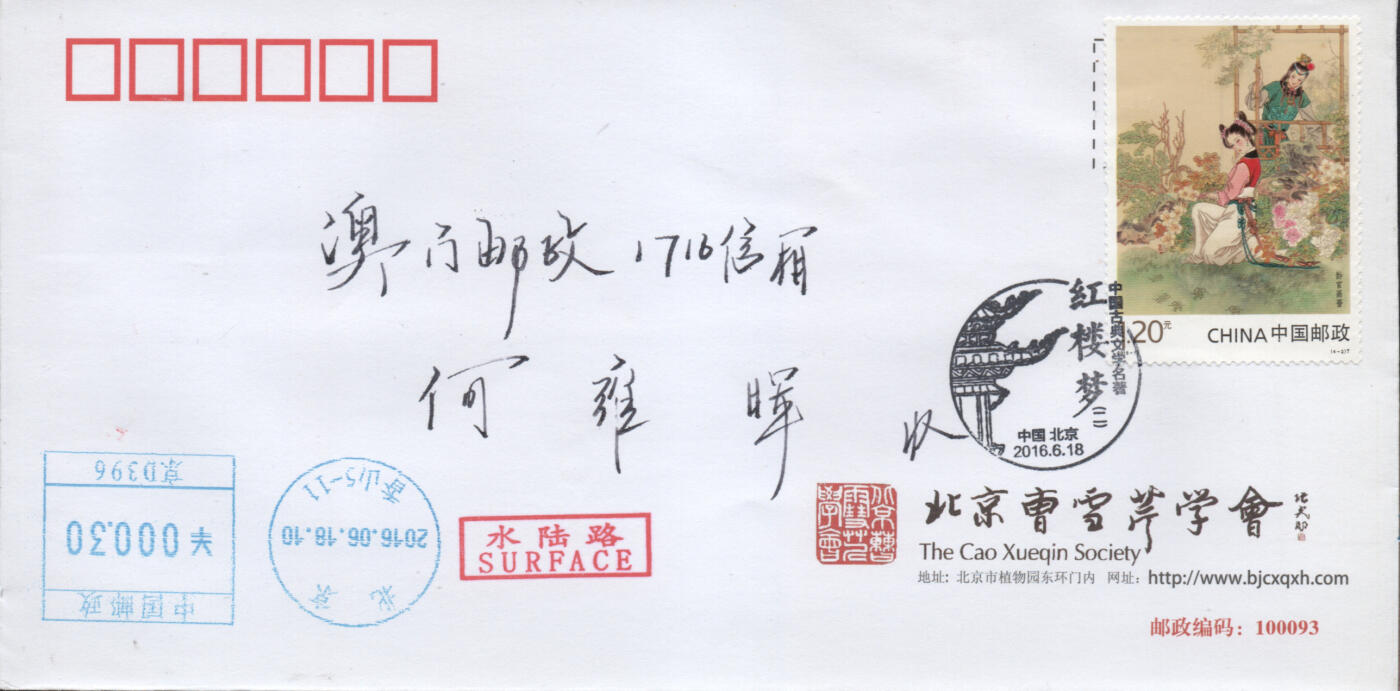 龄官画蔷
1.20元
CHINA中国邮政
(4-2)T
澳门邮政1716信箱
何雍晖 收
中国古典文学名著
红楼梦(二)
中国 北京
2016.6.18
京D396
¥000.30
中国邮政
香山5-11
2016.06.18.10
北京
水陆路
SURFACE
北京曹雪芹学会
北京曹雪芹学會
The Cao Xueqin Society
地址: 北京市植物园东环门内 网址: http://www.bjcxqxh.com
邮政编码: 100093